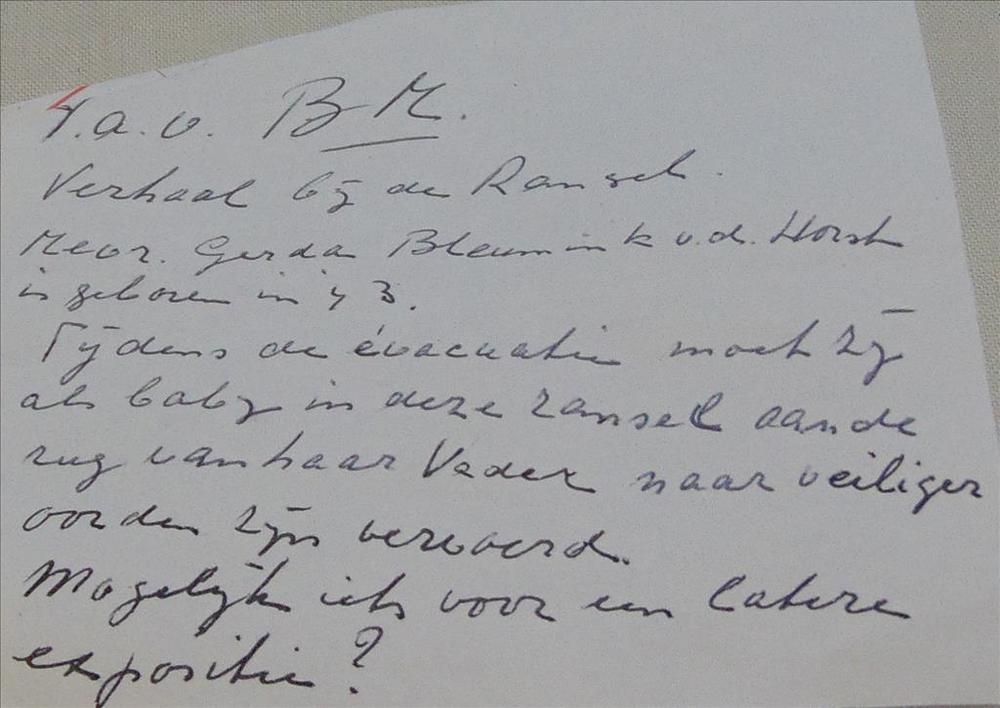 T.a.v. BM.
Verhaal bij de Ransel.
Mevr. Gerda Bleumink v.d. Horst
is geboren in 43.
Tijdens de évacuatie moet zij
als baby in deze ransel aan de
rug van haar Vader naar veiliger
oorden zijn vervoerd.
Mogelijk iets voor een latere
expositie?